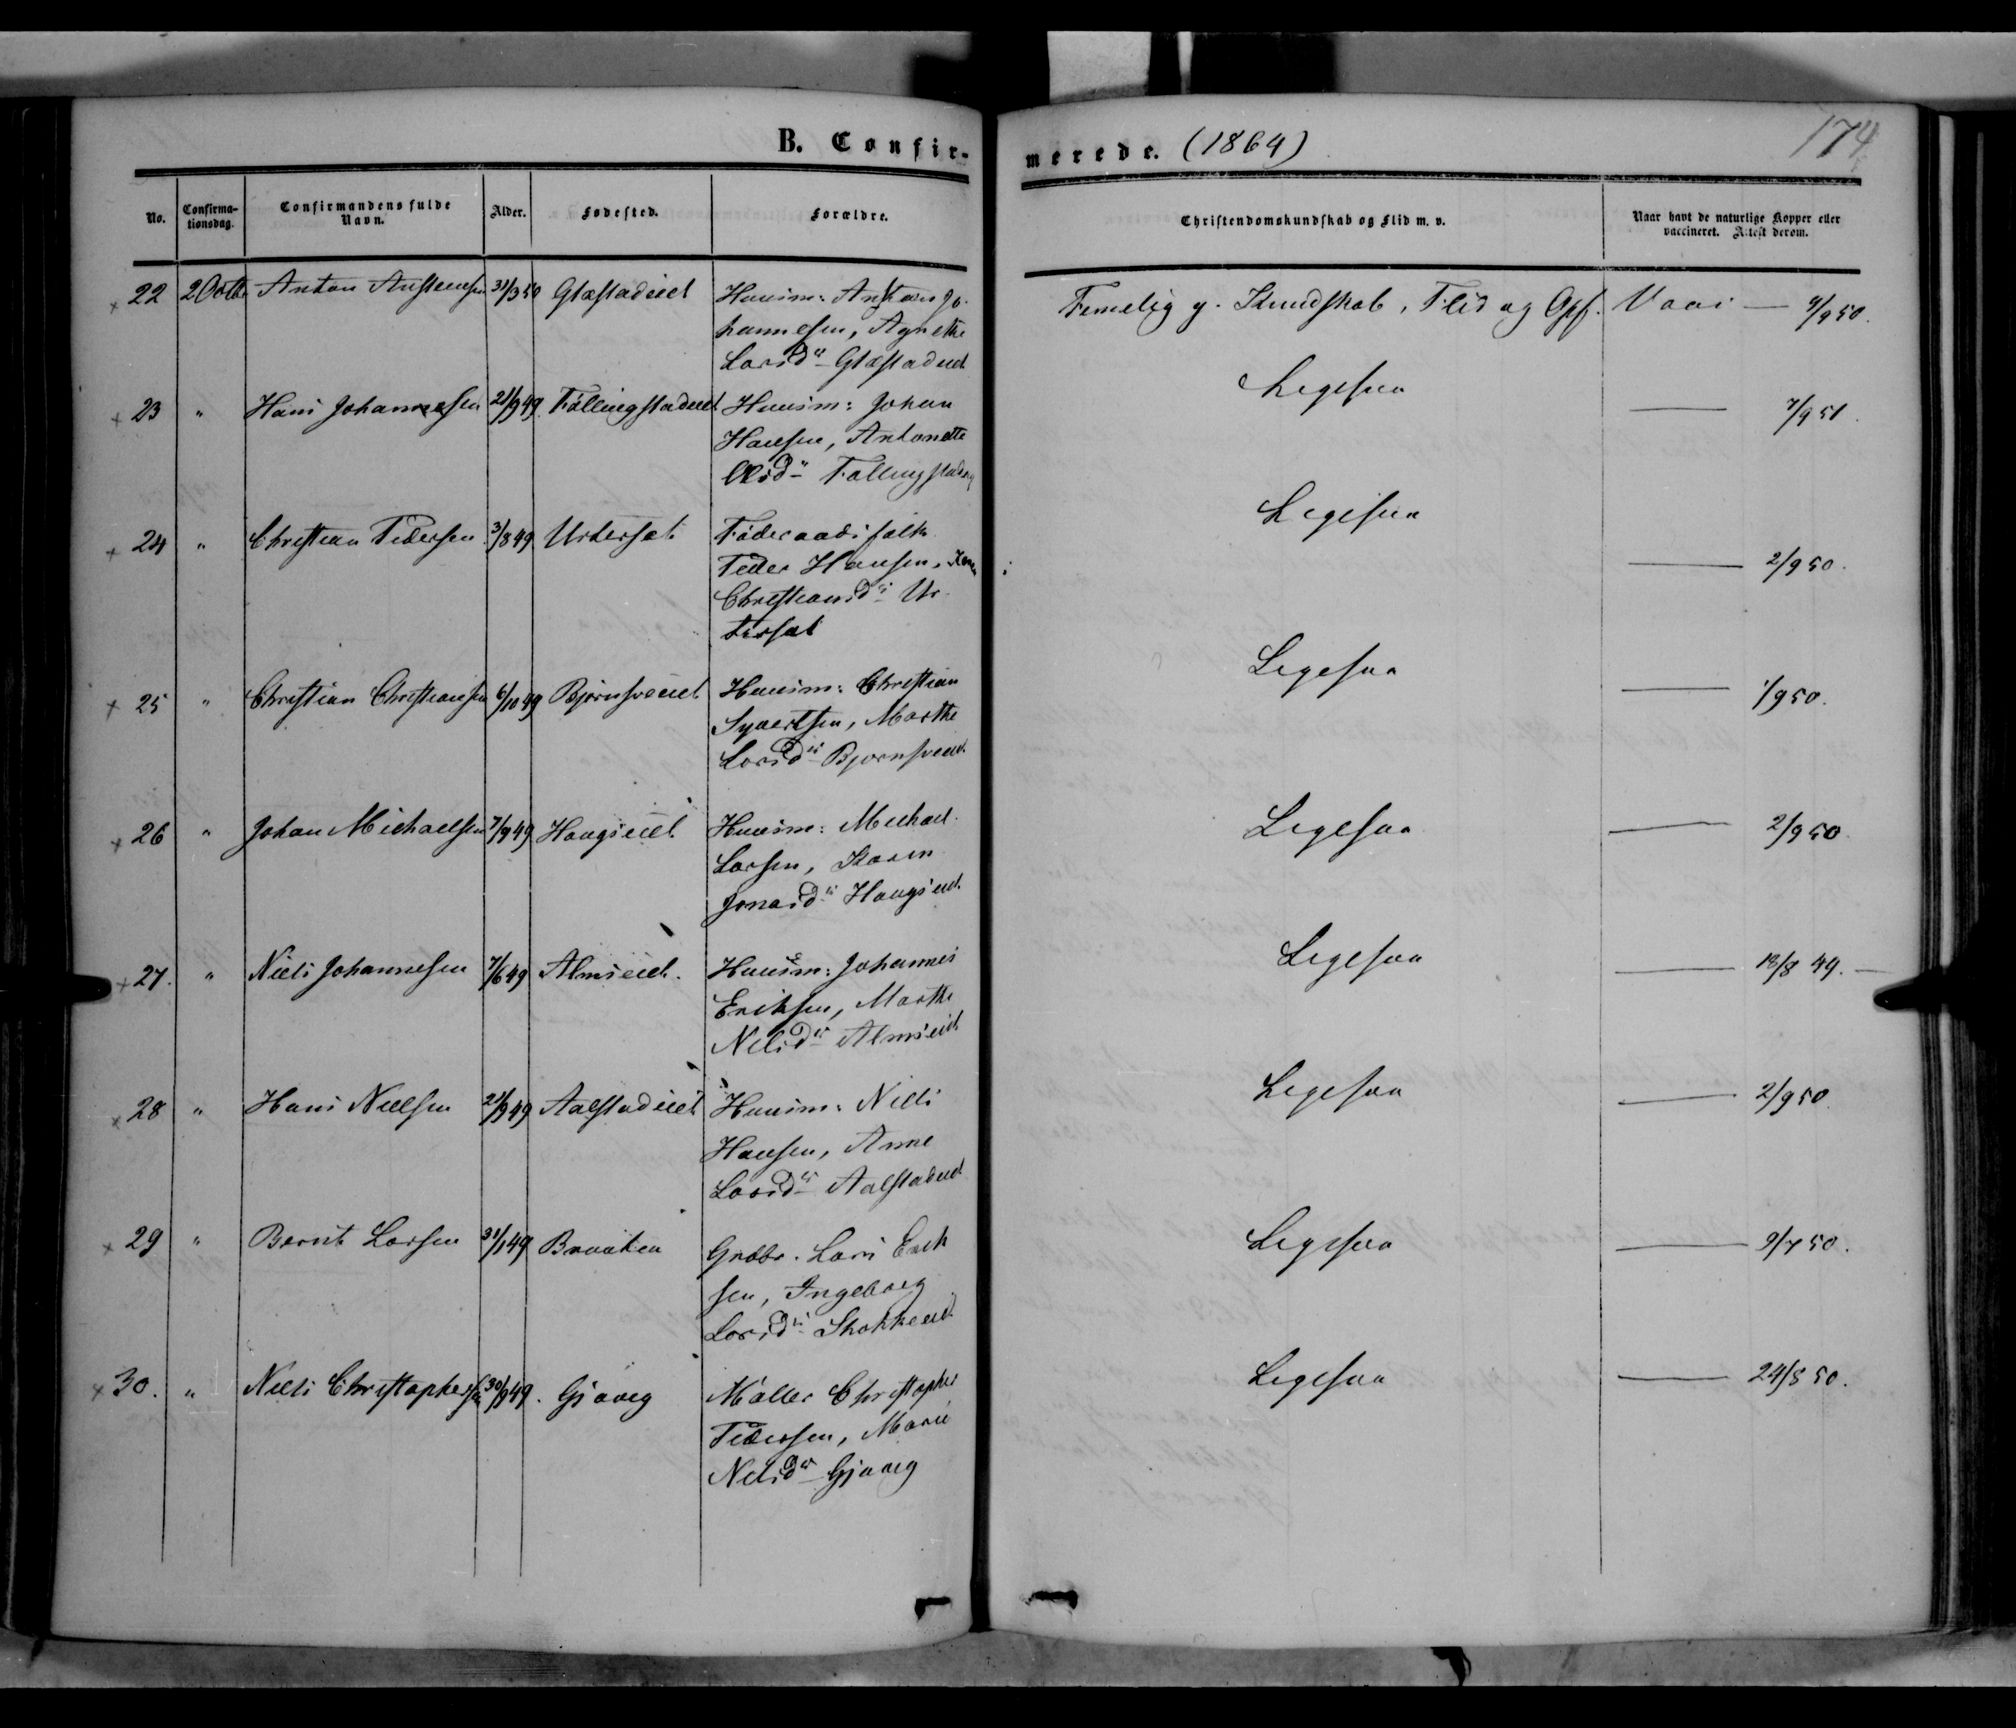 B. Confir-
merede. (1864)
174
No.
Confirma-
tionsdag.
Confirmandens fulde
Navn.
Alder.
Fødested.
Forældre.
Christendomskundskab og Flid m. v.
Naar havt de naturlige Kopper eller
vaccineret. Attest derom.
22 2 Octb Anton Anstensen 31/3 50 Glæstadeiet Huusm: Ansten Jo-
hannesen, Agnethe
Larsd: Glæstadeiet
Temelig g. Kundskab, Flid og Opf. Vacc — 4/9 50.
23 " Hans Johannesen 21/9 49 Föllingstadeiet Huusm: Johan
Hansen, Antonette
Olsd:
Ligesaa — 7/9 51.
24 " Christian Pedersen 3/8 49 Urdersæt Föderaadsfolk
Peder Hansen, Karen
Christiansd: Ur-
dersæt
Ligesaa — 2/9 50.
25 " Christian Christiansen 6/10 49 Bjørnsveeiet Huusm: Christian
Syvertsen, Marthe
Larsd: Bjørnsveeiet
Ligesaa — 1/9 50.
26 " Johan Michaelsen 7/9 49 Haugseiet Huusm: Michael
Larsen, Karen
Jonasd: Haugseiet
Ligesaa — 2/9 50.
27. " Niels Johannesen 7/6 49 Almseiet. Huusm: Johannes
Eriksen, Marthe
Nelsd: Almseiet
Ligesaa — 18/8 49. —
28 " Hans Nielsen 21/9 49 Aalstadeiet Huusm: Niels
Hansen, Anne
Larsd: Aalstadeiet
Ligesaa — 2/9 50.
29 " Bernt Larsen 31/1 49 Braaten Grdbr. Lars Erik
sen, Ingeborg
Larsd: Stokkeeiet
Ligesaa — 9/7 50.
30. " Niels Christophersen 30/9 49. Gjøvig Møller Christopher
Pedersen, Marie
Nelsd: Gjøvig
Ligesaa — 24/5 50.